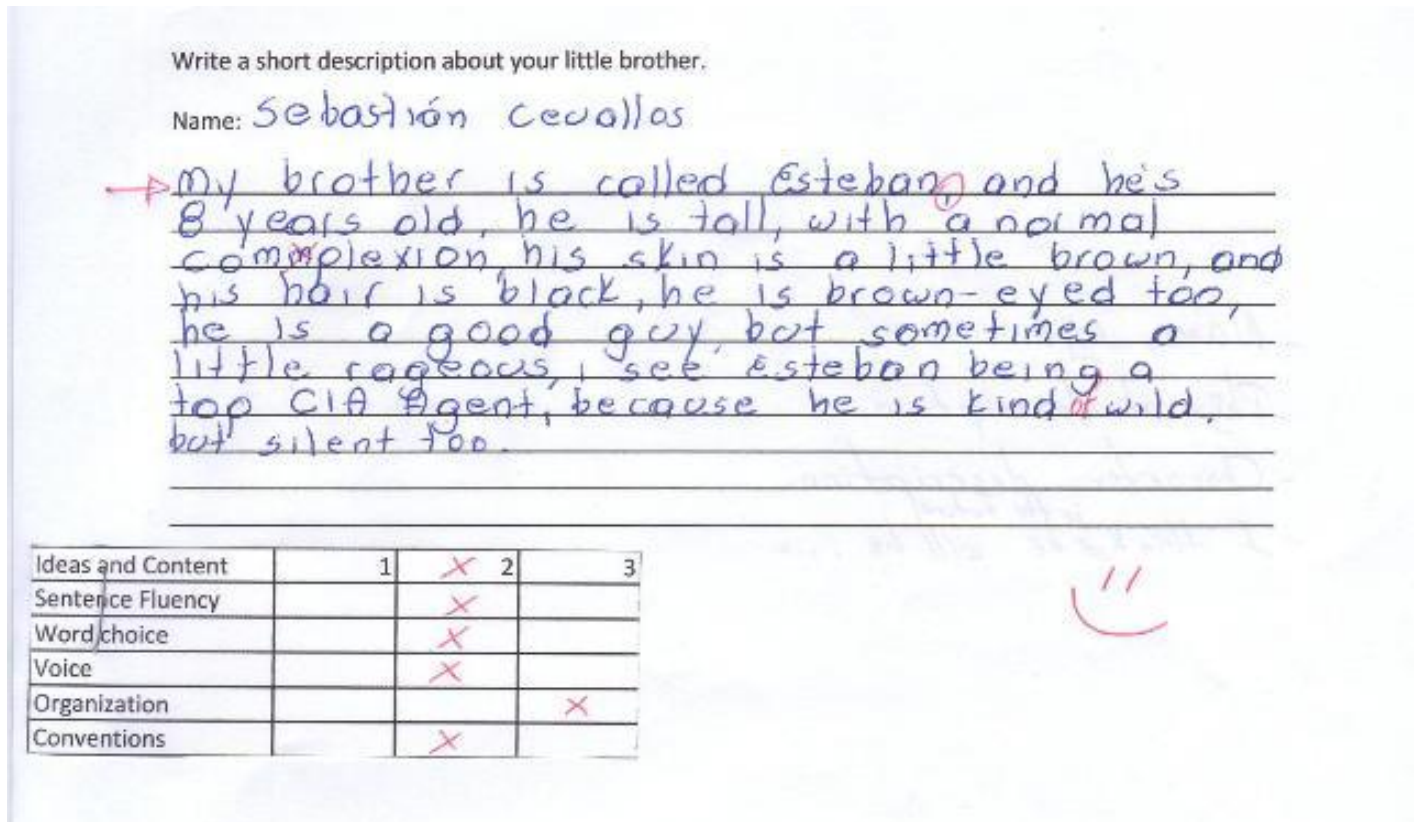 Write a short description about your little brother.
Name: Sebastián Cevallos
My brother is called Esteban, and he's
8 years old, he is tall, with a normal
commplexion, his skin is a little brown, and
his hair is black, he is brown-eyed too,
he is a good guy, but sometimes a
little rageous, i see Esteban being a
top CIA Agent, because he is kind of wild,
but silent too.
Ideas and Content 1 X 2 3
Sentence Fluency X
Word choice X
Voice X
Organization X
Conventions X